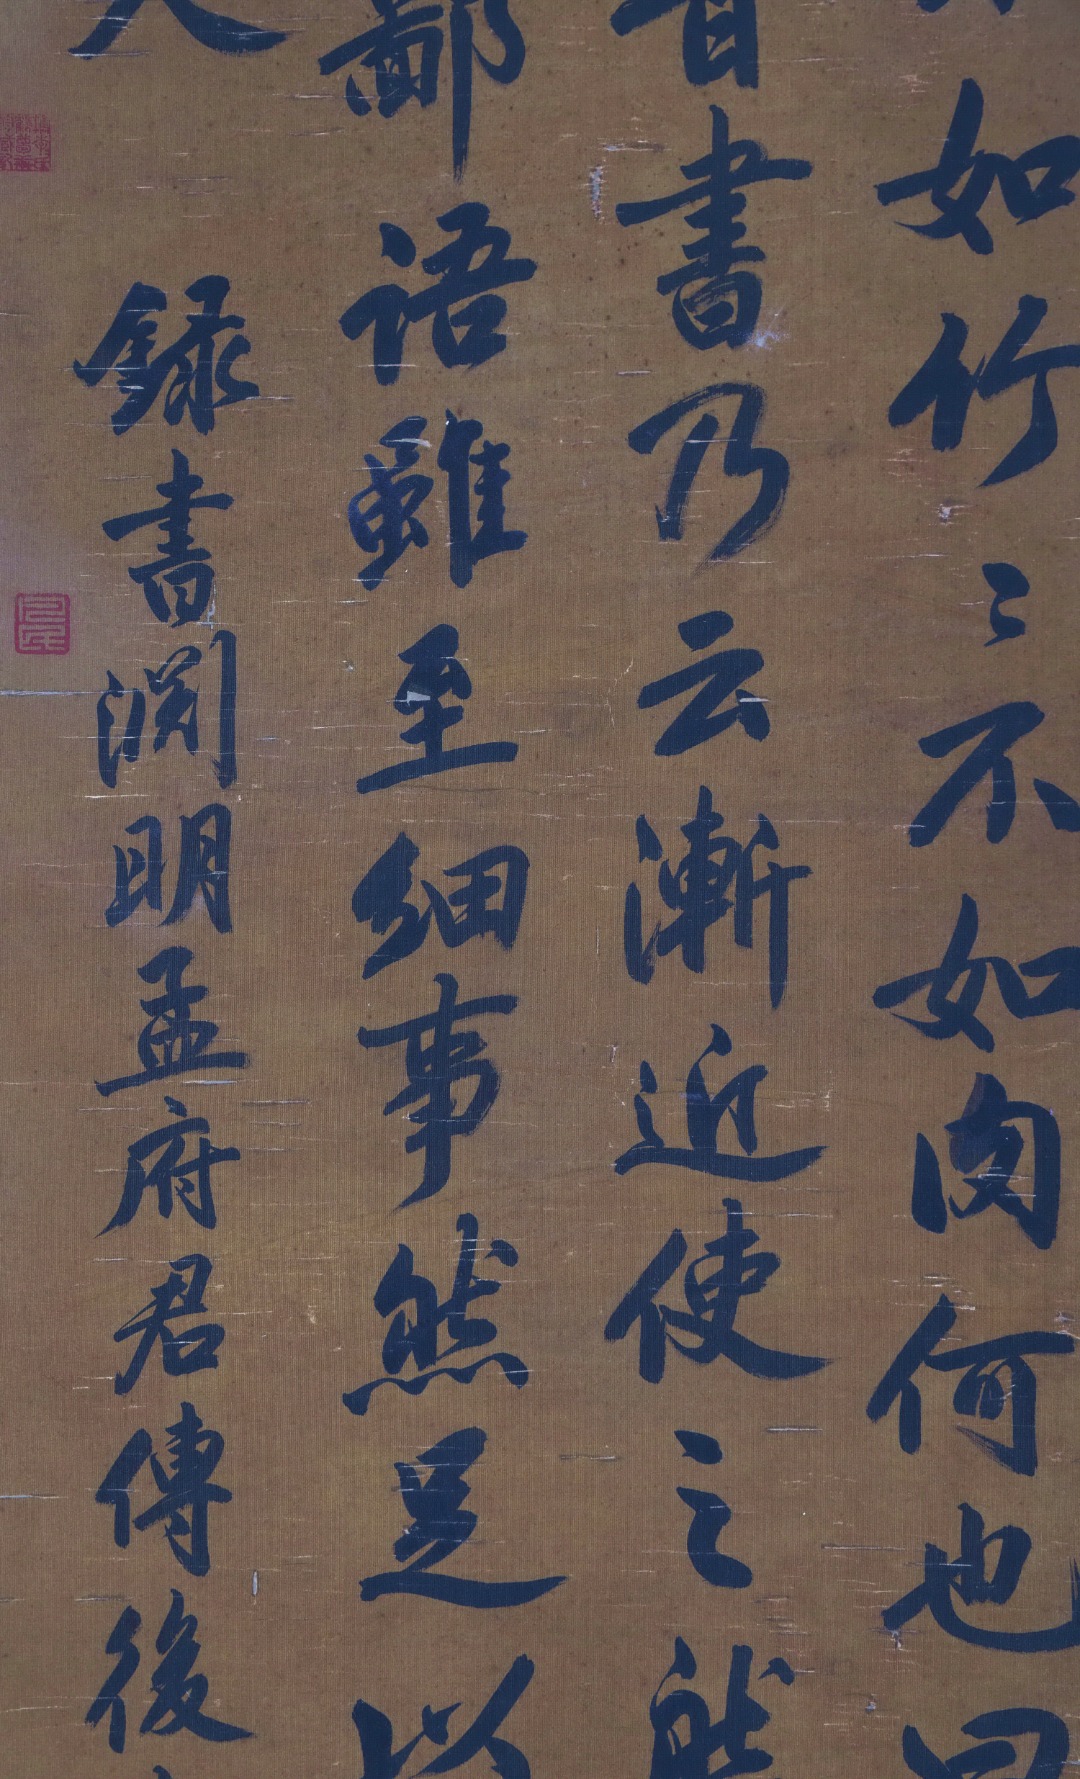 如竹〻不如肉何也曰
書乃云漸近使之然
鄙語雖至細事然足以
錄書淵明孟府君傳後